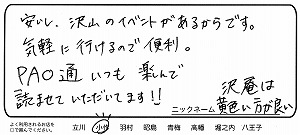 安いし、沢山のイベントがあるからです。
気軽に行けるので便利。
PAO通いつも楽しんで
読ませていただいてます!!
ニックネーム 沢庵は黄色い方が良い
よく利用されるお店を○で囲んでください。 立川 小作 羽村 昭島 青梅 高幡 堀之内 八王子